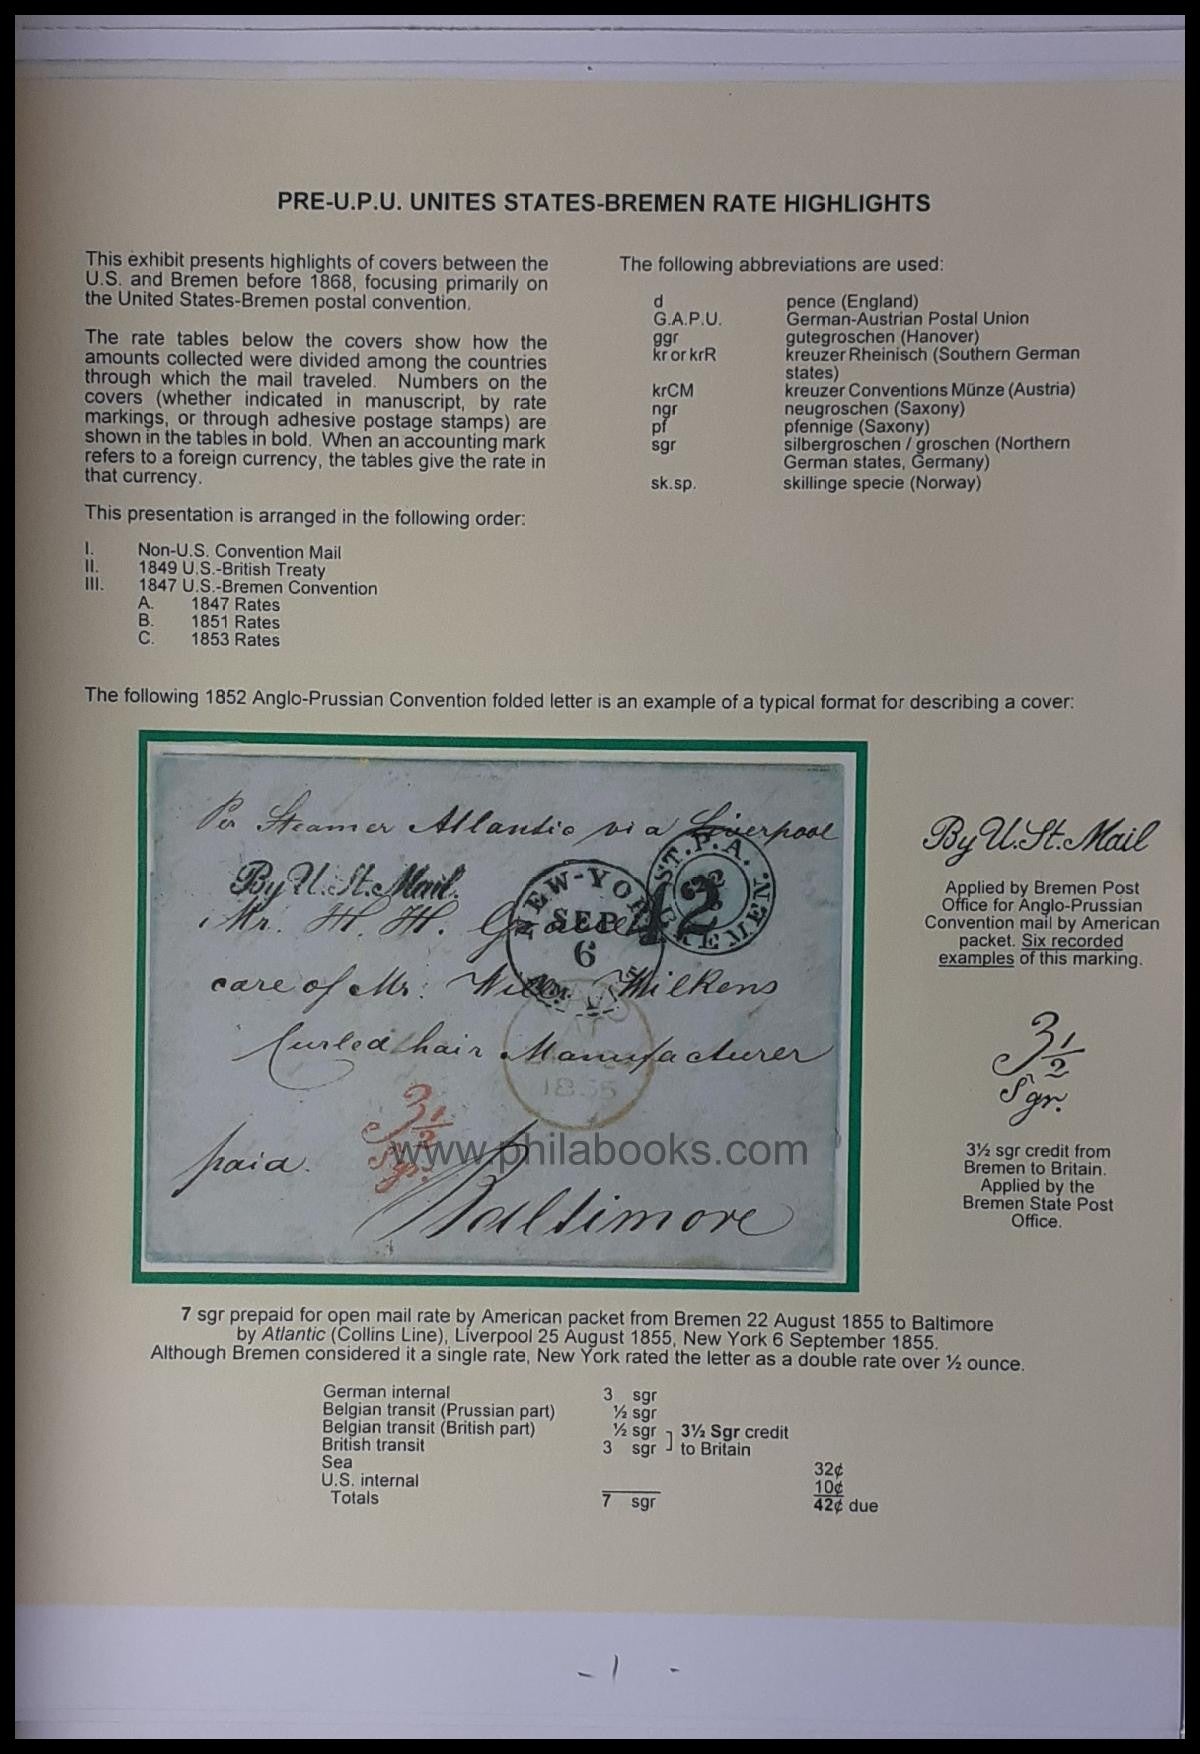 PRE-U.P.U. UNITES STATES-BREMEN RATE HIGHLIGHTS
This exhibit presents highlights of covers between the
U.S. and Bremen before 1868, focusing primarily on
the United States-Bremen postal convention.
The rate tables below the covers show how the
amounts collected were divided among the countries
through which the mail traveled. Numbers on the
covers (whether indicated in manuscript, by rate
markings, or through adhesive postage stamps) are
shown in the tables in bold. When an accounting mark
refers to a foreign currency, the tables give the rate in
that currency.
This presentation is arranged in the following order:
I. Non-U.S. Convention Mail
II. 1849 U.S.-British Treaty
III. 1847 U.S.-Bremen Convention
A. 1847 Rates
B. 1851 Rates
C. 1853 Rates
The following abbreviations are used:
d pence (England)
G.A.P.U. German-Austrian Postal Union
ggr gutegroschen (Hanover)
kr or krR kreuzer Rheinisch (Southern German
states)
krCM kreuzer Conventions Münze (Austria)
ngr neugroschen (Saxony)
pf pfennige (Saxony)
sgr silbergroschen / groschen (Northern
German states, Germany)
sk.sp. skillinge specie (Norway)
The following 1852 Anglo-Prussian Convention folded letter is an example of a typical format for describing a cover:
Per Steamer Atlantic via Liverpool
By U. St. Mail.
NEW-YORK
SEP
6
42
ST.P.A.
BREMEN
Mr. H. H.
care of Mr. Wilkens
Curled hair Manufacturer
1855
3 1/2
Sgr.
paid.
Baltimore
www.philabooks.com
By U. St. Mail
Applied by Bremen Post
Office for Anglo-Prussian
Convention mail by American
packet. Six recorded
examples of this marking.
3 1/2
Sgr.
3½ sgr credit from
Bremen to Britain.
Applied by the
Bremen State Post
Office.
7 sgr prepaid for open mail rate by American packet from Bremen 22 August 1855 to Baltimore
by Atlantic (Collins Line), Liverpool 25 August 1855, New York 6 September 1855.
Although Bremen considered it a single rate, New York rated the letter as a double rate over ½ ounce.
German internal 3 sgr
Belgian transit (Prussian part) ½ sgr
Belgian transit (British part) ½ sgr 3½ Sgr credit
British transit 3 sgr to Britain
Sea 32¢
U.S. internal 10¢
Totals 7 sgr 42¢ due
- 1 -